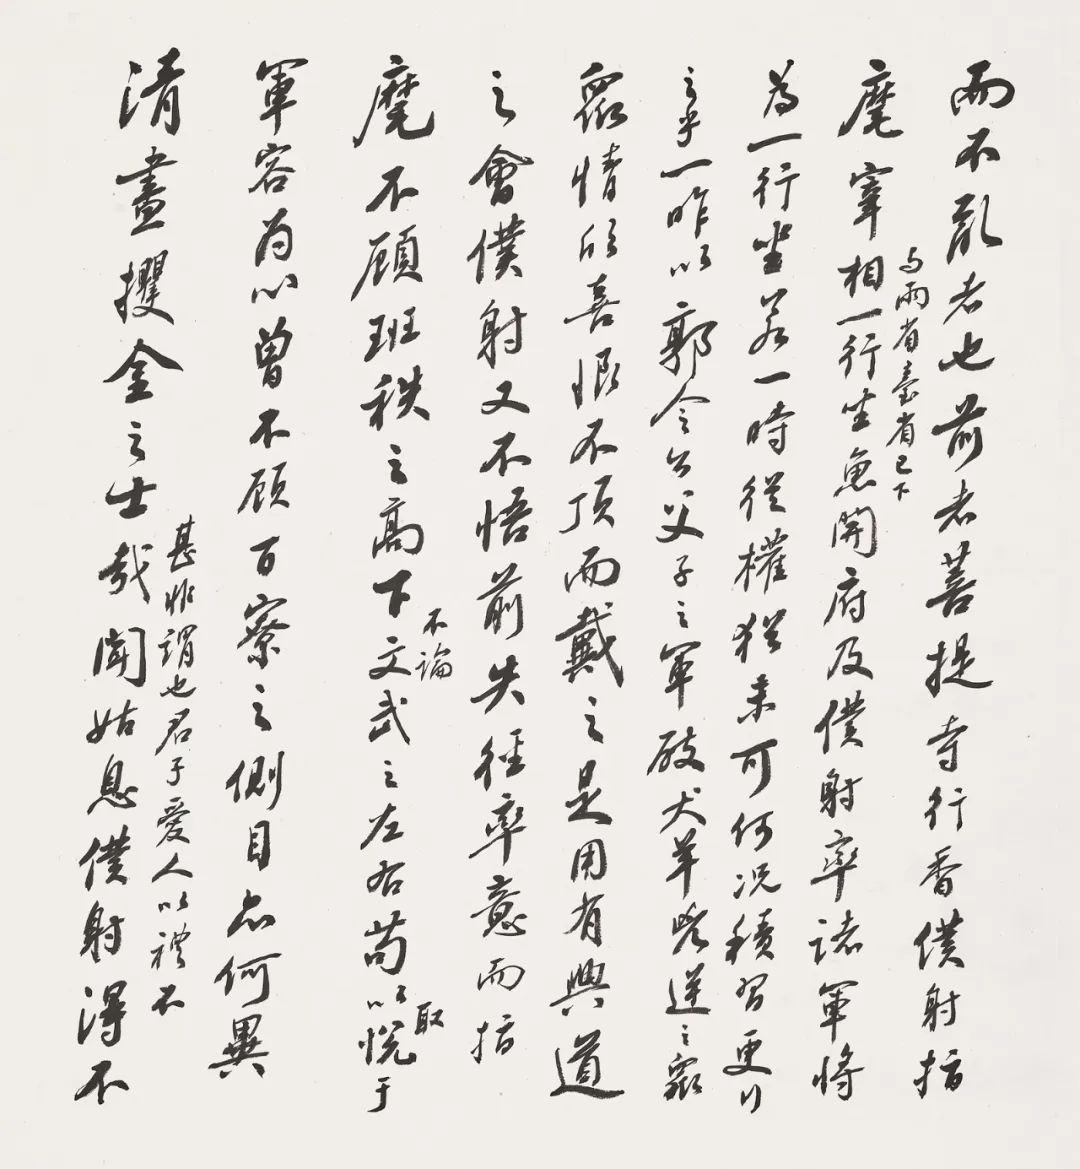 而不亂者也前者菩提寺行香僕射指
麾宰相与兩省臺省已下一行坐魚開府及僕射率諸軍將
為一行坐若一時從權猶未可何況積習更行
之乎一昨以郭令公父子之軍破犬羊凶逆之眾
眾情欣喜恨不頂而戴之是用有興道
之會僕射又不悟前失徑率意而指
麾不顧班秩之高下不論文武之左右苟以取悅于
軍容為心曾不顧百寮之側目亦何異
清晝攫金之士哉
甚非謂也君子愛人以禮不
聞姑息僕射得不